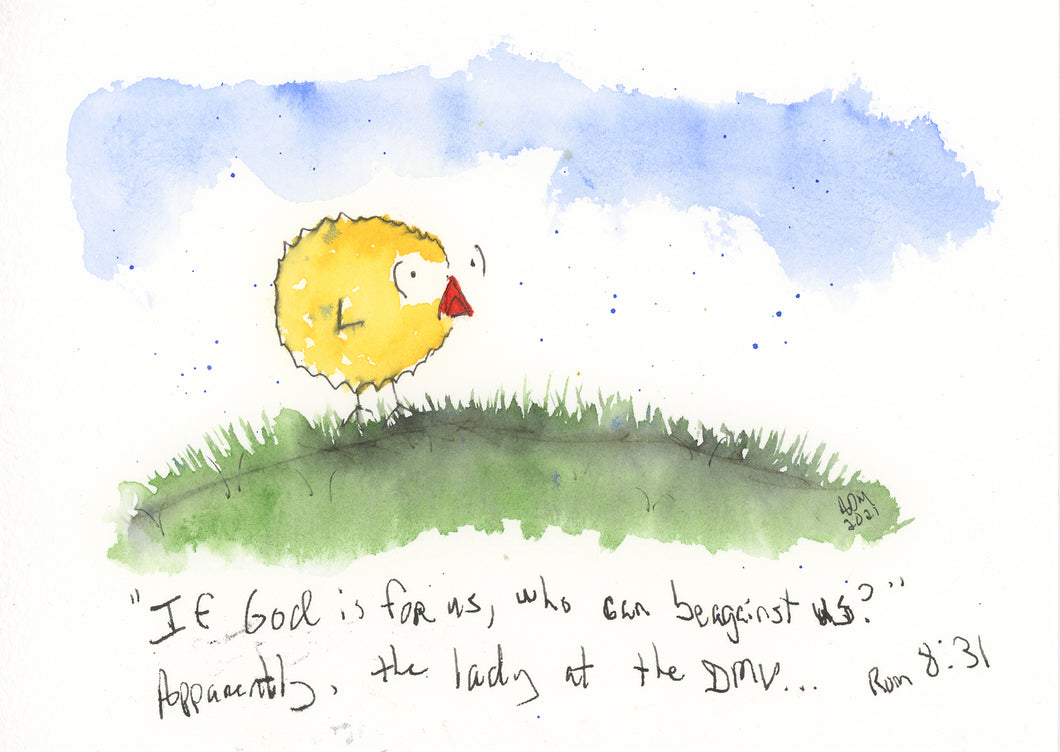 ADM
2021
"If God is for us, who can be against us?"
Apparently, the lady at the DMV...
Rom 8:31